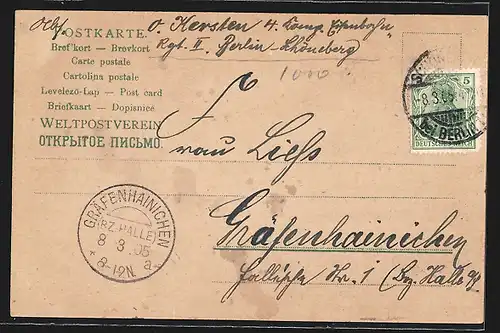 Abs. O. Kersten 4. Comp. Eisenbahn
Rgt. II. Berlin-Schöneberg
POSTKARTE.
Brefkort — Brevkort
Carte postale
Cartolina postale
Levelező-Lap — Post card
Briefkaart — Dopisnice
WELTPOSTVEREIN
ОТКРЫТОЕ ПИСЬМО.
1000
5
8.3.05
BERLIN
DEUTSCHES REICH
Frau Liess
GRÄFENHAINICHEN
(BZ. HALLE)
8 3 .05
* 8-12N. a *
Gräfenhainichen
Hallische Str. 1 (Bz. Halle a/S